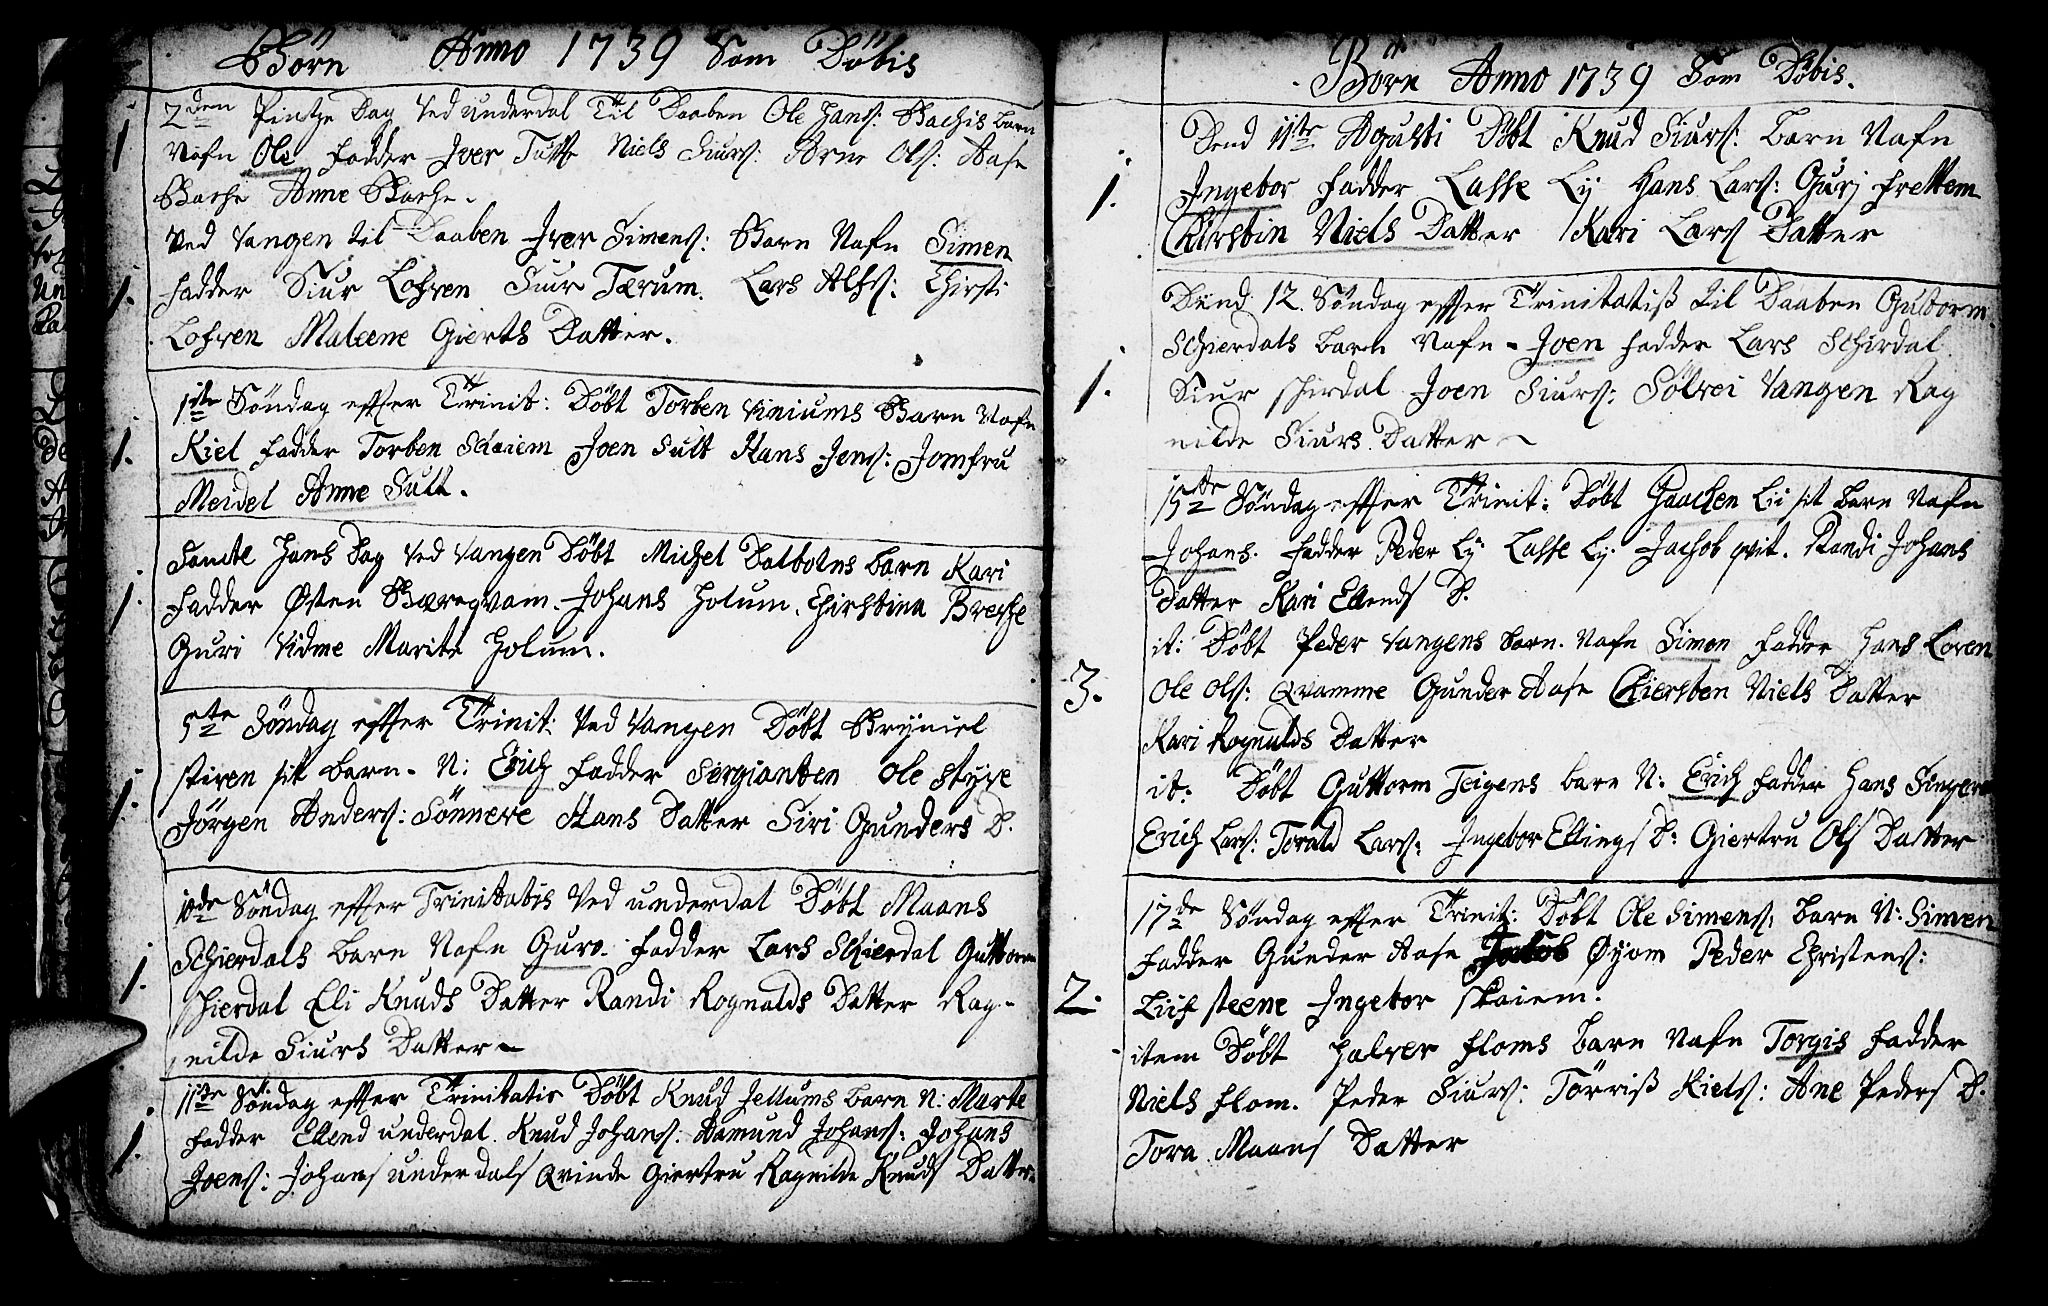 Börn Anno 1739 Som Döbis
2den Pintze Dag Ved underdal Til Daaben Ole Hans: Bachis barn
1 Nafn Ole Fadder Iver Tufte Niels Siurs: Arne Ols: Aase
Bache Anne Bache.
Ved Vangen til Daaben Iver Simens: Barn Nafn Simen
1. Fadder Siur Lohren Siur Tærum. Lars Alfs: Chirsti
Lohren Maleene Gierts Datter.
1ste Söndag effter Trinit: Döbt Torben Viniums Barn Nafn
1. Kiel Fadder Torben Schaiem Joen Sult Hans Jens: Jomfru
Meidel Anne Sult.
Sancte Hans Dag Ved Vangen Döbt Michel Dalbotns barn Kari
1. Fadder Østen Bæregvam. Johans Holum. Chirstina Breche
Guri Vidme Marite Holum.
5te Söndag effter Trinit: Ved Vangen Döbt Bryniel
stiren sit barn. N: Erich Fadder Sergianten Ole Styve
1. Jörgen Anders: Sönneve Hans Datter Siri Gunders D.
10de Söndag effter Trinitatis Ved underdal Döbt Maans
1. Schierdals barn Nafn Guro. Fadder Lars Schierdal Guttorm
schierdal Eli Knuds Datter Randi Rognalds Datter Rag-
nilde Siurs Datter
11te Söndag effter Trinitatis Döbt Knud Jellums barn N: Marte
1. Fadder Ellend underdal. Knud Johans: Aamund Johans: Johans
Joens: Johans underdals Qvinde Giertru Ragnilde Knuds Datter.
Börn Anno 1739 Som Döbis.
Dend 11te Agusti Döbt Knud Siurs: barn Nafn
1. Ingebor Fadder Lasse Ly Hans Lars: Guri Frettem
Chirstin Niels Datter Kari Lars Datter
Dend 12. Söndag effter Trinitatiß til Daaben Gulborm
Schierdals barn Nafn - Joen Fadder Lars Schirdal
1. Siur schirdal Joen Siurs: Sölvei Vangen Rag
nilde Siurs Datter
15te Söndag effter Trinit: Döbt Lii sit barn Nafn
Johans. Fadder Peder Ly Lasse Ly Jachob qvit. Randi Johans
Datter Kari Ellends D.
it: Döbt Peder Vangens barn. Nafn Simon Fadder Hans Loven
3. Ole Ols: Qvamme Gunder Aase Chiersten Niels Datter
Kari Rognalds Datter
it: Döbt Guttorm Teigens barn N: Erich Fadder Hans
Erich Lars: Torald Lars: Ingebor Ellings D: Giertru Ols Datter
17de Söndag effter Trinit: Döbt Ole Simens: barn N: Simen
Fadder Gunder Aase Jacob Øyom Peder Christens:
2. Ingebor Skaiem.
item Döbt Halver Floms barn Nafn Torgis Fadder
Niels Flom. Peder Siurs: Törriß Kiels: Ane Peders D.
Tora Maans Datter